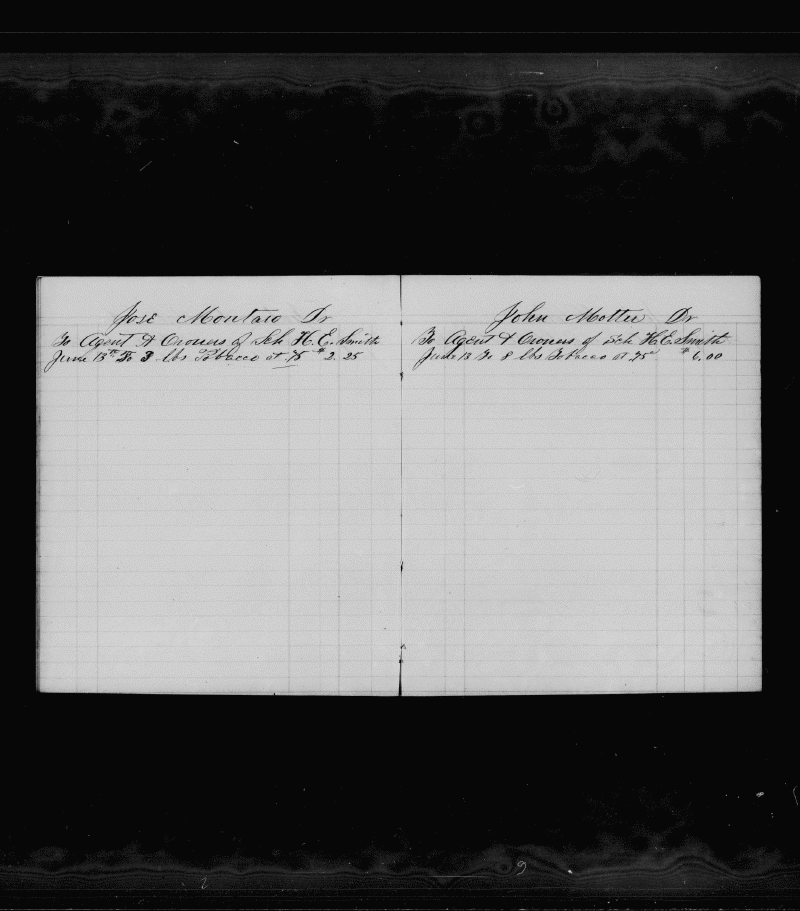 Jose Montaro Dr
To Agent & Owners of Sch H.E. Smith
June 13th To 3 lbs Tobacco at 75 $2.25
John Motter Dr
To Agent & Owners of Sch H.E. Smith
June 13 To 8 lbs Tobacco at 75c $6.00